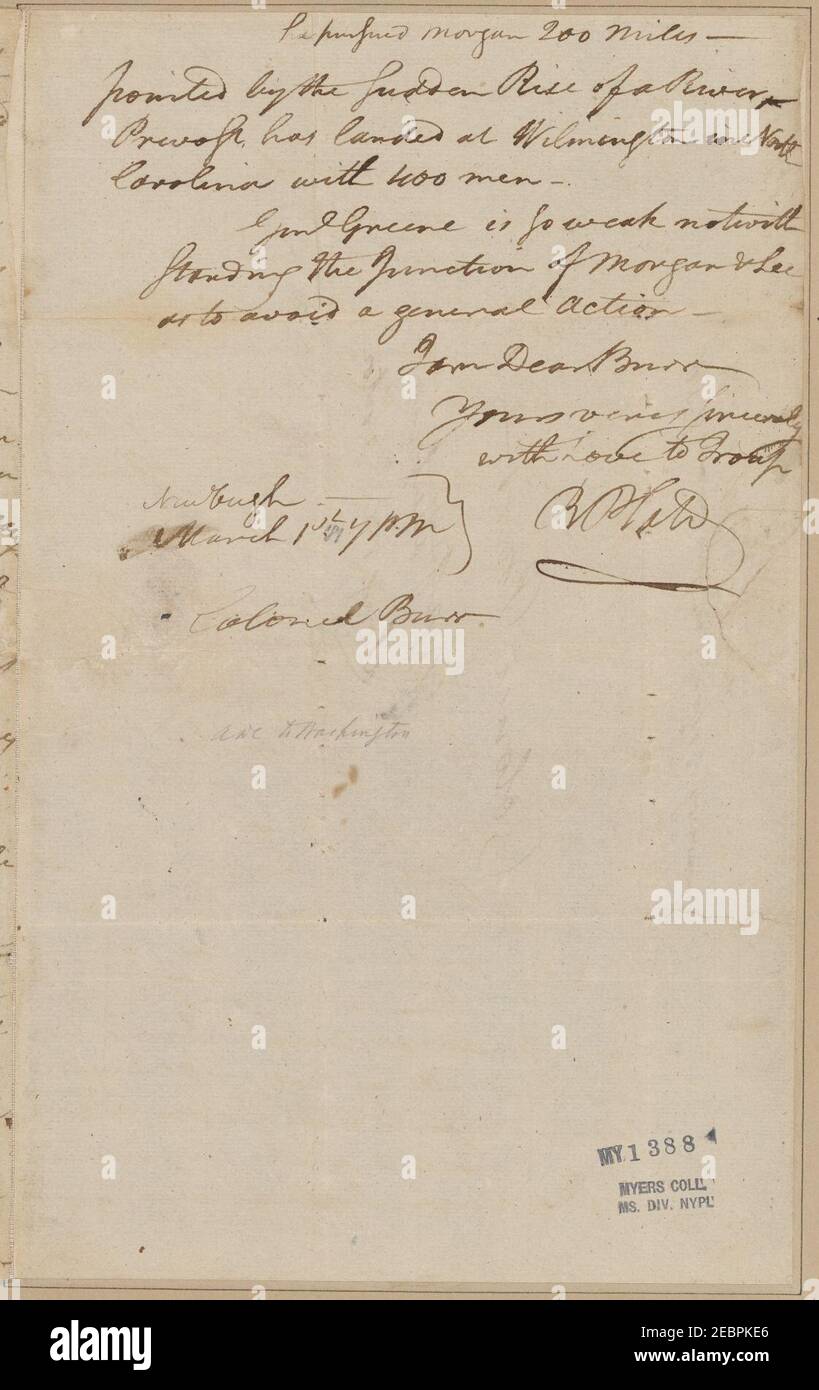 pursued Morgan 200 Miles —
pointed by the Sudden Rise of a River —
Prevost has landed at Wilmington in North
Carolina with 400 men —
Genl Greene is so weak notwith
standing the Junction of Morgan & Lee
as to avoid a general Action —
I am Dear Burr
Yours very sincerely
with Love to Troup
Newburgh —
March 1st 7 PM
R Platt
Colonel Burr
ADC to Washington
MY 1388
MYERS COLL.
MS. DIV. NYPL
a alamy
alamy
Image ID: 2EBPKE6
www.alamy.com